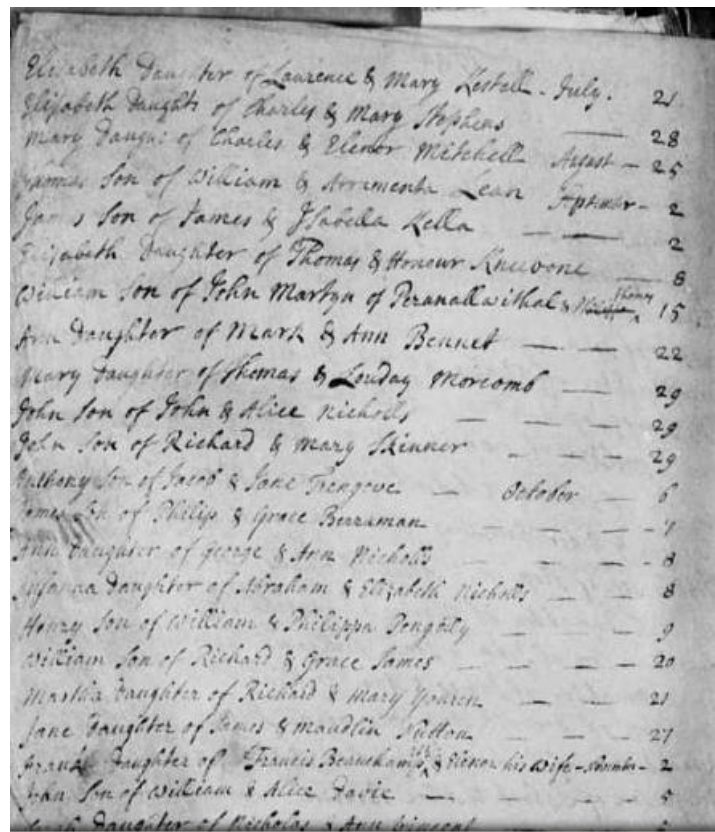 Elizabeth Daughter of Laurence & Mary Kestell - July. 21
Elizabeth Daughtr of Charles & Mary Stephens — 28
Mary Daugtr of Charles & Elenor Mitchell August — 25
Thomas Son of William & Arramenta Lean Septembr — 2
James Son of James & Isabella Kella — — 2
Elizabeth Daughter of Thomas & Honour Kneevone — 8
William Son of John Martyn of Peranallwithal & 15
Ann Daughter of Mark & Ann Bennet — — 22
Mary Daughter of Thomas & Louday Morcomb — 29
John Son of John & Alice Nicholls — — — 29
John Son of Richard & Mary Skinner - — — 29
Anthony Son of Jacob & Jane Trengove — October — 6
James Son of Philip & Grace Berraman — — 7
Ann Daughter of George & Ann Nicholls - — — 8
Susanna Daughter of Abraham & Elizabeth Nicholls — — 8
Henry Son of William & Philippa — — — 9
William Son of Richard & Grace James — — — — 20
Martha Daughter of Richard & Mary — — — 21
Jane Daughter of James & Maudlin — — — 27
Daughter of Francis Beauchamp & Elenor his Wife - — 2
John Son of William & Alice Davie — — — 5
Daughter of Nicholas & Ann Vincent